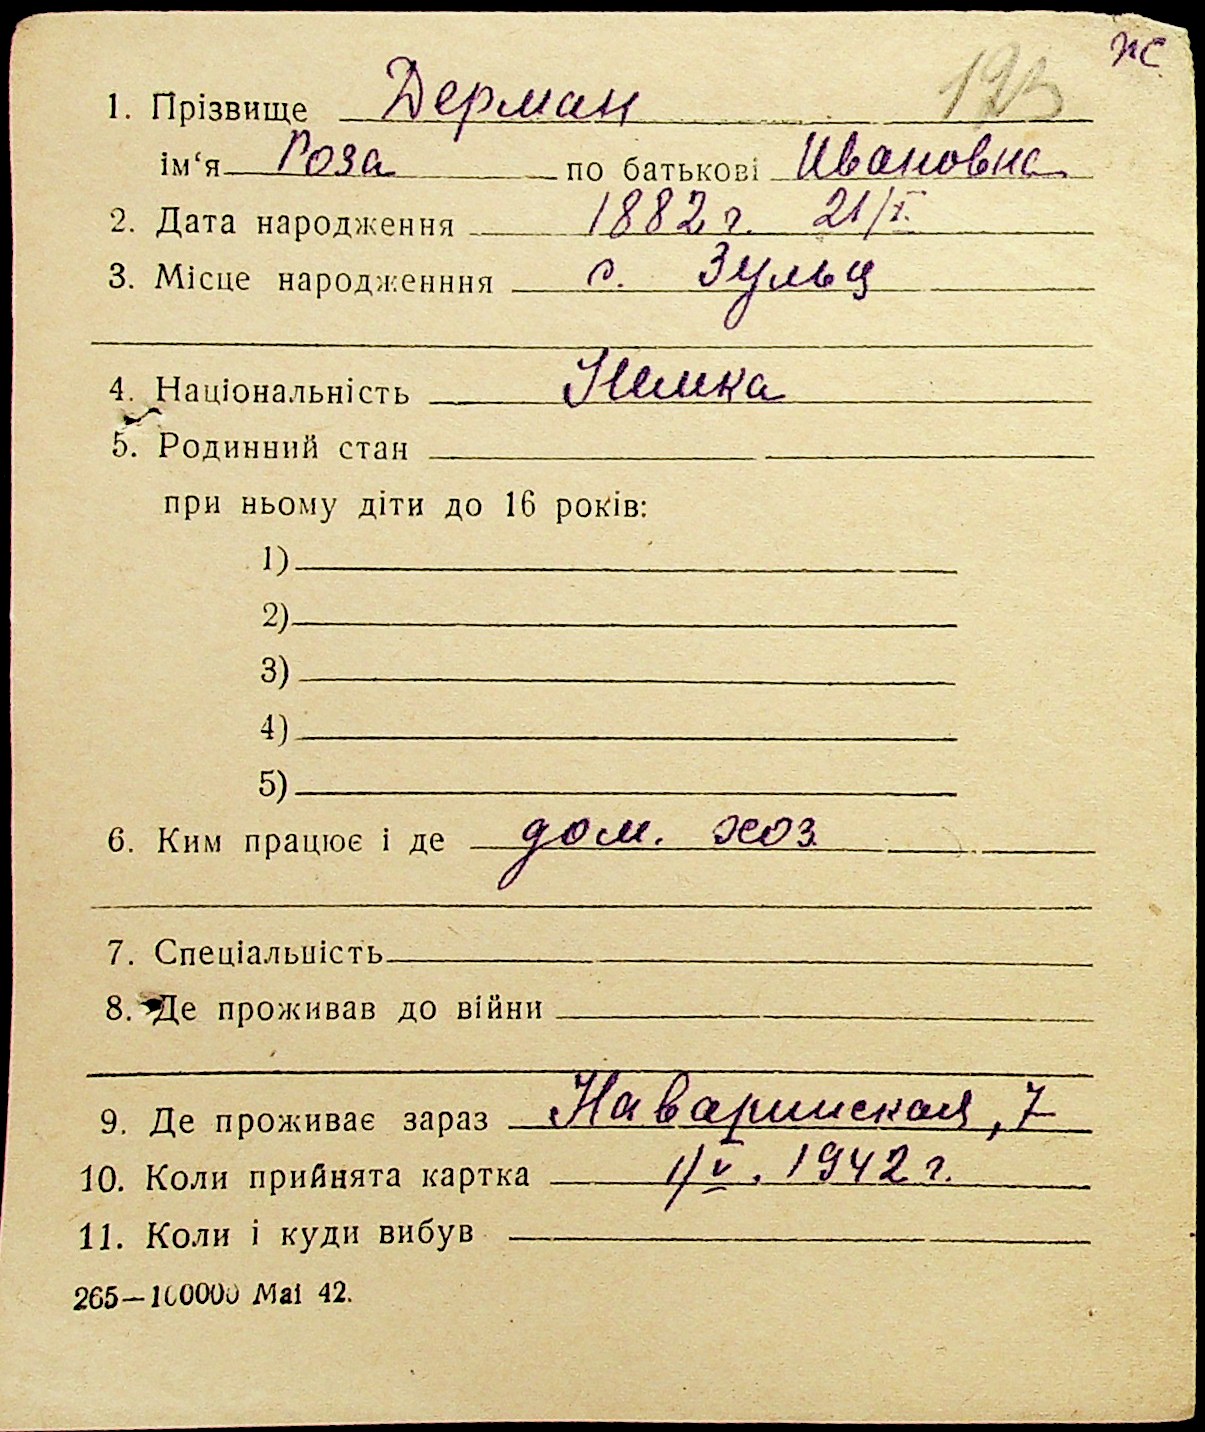 жс
193
1. Прізвище Дерман
ім‘я Роза по батькові Ивановна
2. Дата народження 1882 г. 21/I.
3. Місце народженння с. Зульц
4. Національність Немка
5. Родинний стан
при ньому діти до 16 років:
1)
2)
3)
4)
5)
6. Ким працює і де дом. хоз
7. Спеціальність
8. Де проживав до війни
9. Де проживає зараз Наваринская, 7
10. Коли прийнята картка 1/V. 1942 г.
11. Коли і куди вибув
265—100000 Mai 42.